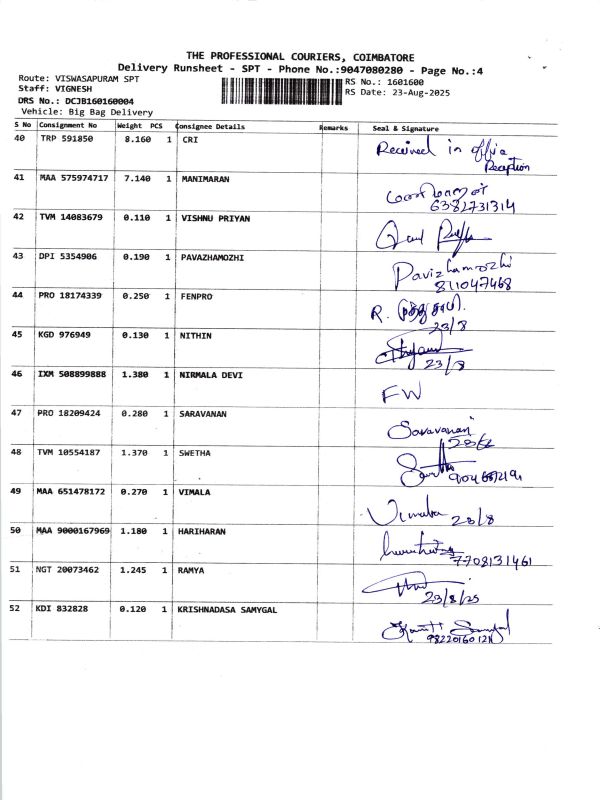 THE PROFESSIONAL COURIERS, COIMBATORE
Delivery Runsheet - SPT - Phone No.:9047080280 - Page No.:4
Route: VISWASAPURAM SPT
RS No.: 1601600
Staff: VIGNESH
RS Date: 23-Aug-2025
DRS No.: DCJB160160004
Vehicle: Big Bag Delivery
S No Consignment No Weight PCS Consignee Details Remarks Seal & Signature
40 TRP 591850 8.160 1 CRI Received in office
Reception
41 MAA 575974717 7.140 1 MANIMARAN
6382731314
42 TVM 14083679 0.110 1 VISHNU PRIYAN
43 DPI 5354906 0.190 1 PAVAZHAMOZHI Pavizhamozhi
811047468
44 PRO 18174339 0.250 1 FENPRO R.
23/8
45 KGD 976949 0.130 1 NITHIN
23/8
46 IXM 508899888 1.380 1 NIRMALA DEVI FW
47 PRO 18209424 0.280 1 SARAVANAN Saravanan
48 TVM 10554187 1.370 1 SWETHA
49 MAA 651478172 0.270 1 VIMALA Vimala 23/8
50 MAA 9000167969 1.180 1 HARIHARAN
7708131461
51 NGT 20073462 1.245 1 RAMYA
23/8/25
52 KDI 832828 0.120 1 KRISHNADASA SAMYGAL